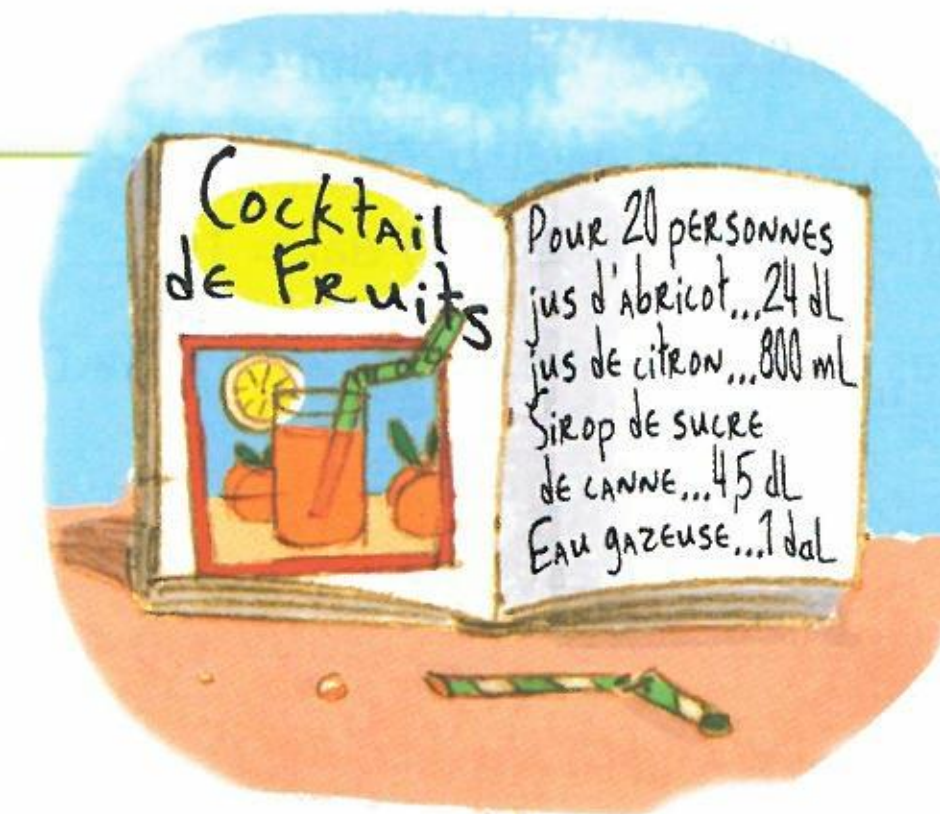 Cocktail
de Fruits
Pour 20 personnes
jus d'abricot...24 dL
jus de citron...800 mL
Sirop de sucre
de canne...45 dL
Eau gazeuse...1 daL